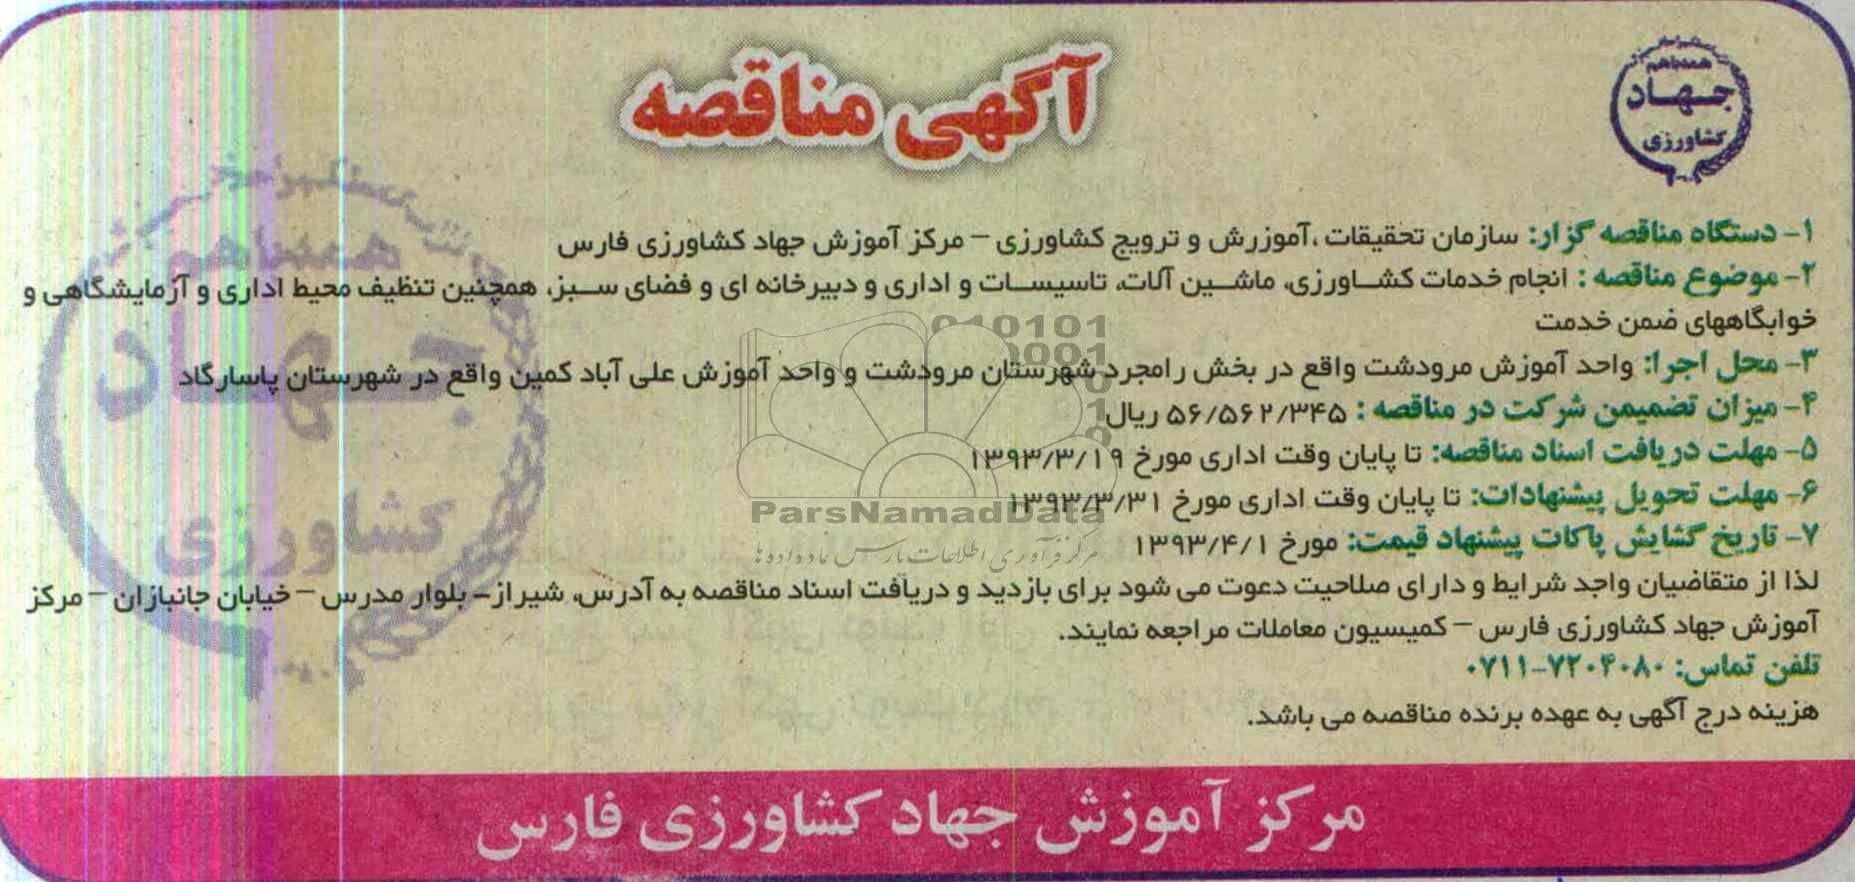 همه با هم
جهاد
کشاورزی
آگهی مناقصه
۱- دستگاه مناقصه گزار: سازمان تحقیقات ،آموزرش و ترویج کشاورزی – مرکز آموزش جهاد کشاورزی فارس
۲- موضوع مناقصه : انجام خدمات کشاورزی، ماشین آلات، تاسیسات و اداری و دبیرخانه ای و فضای سبز، همچنین تنظیف محیط اداری و آزمایشگاهی و
خوابگاههای ضمن خدمت
۳- محل اجرا: واحد آموزش مرودشت واقع در بخش رامجرد شهرستان مرودشت و واحد آموزش علی آباد کمین واقع در شهرستان پاسارگاد
۴- میزان تضمیمن شرکت در مناقصه : ۵۶/۵۶۲/۳۴۵ ریال
۵- مهلت دریافت اسناد مناقصه: تا پایان وقت اداری مورخ ۱۳۹۳/۳/۱۹
۶- مهلت تحویل پیشنهادات: تا پایان وقت اداری مورخ ۱۳۹۳/۳/۳۱
۷- تاریخ گشایش پاکات پیشنهاد قیمت: مورخ ۱۳۹۳/۴/۱
لذا از متقاضیان واجد شرایط و دارای صلاحیت دعوت می شود برای بازدید و دریافت اسناد مناقصه به آدرس، شیراز– بلوار مدرس – خیابان جانبازان – مرکز
آموزش جهاد کشاورزی فارس – کمیسیون معاملات مراجعه نمایند.
تلفن تماس: ۷۲۰۴۰۸۰-۰۷۱۱
هزینه درج آگهی به عهده برنده مناقصه می باشد.
مرکز آموزش جهاد کشاورزی فارس
همه با هم
جهاد
کشاورزی
ParsNamadData
مرکز فرآوری اطلاعات پارس نماد داده ها